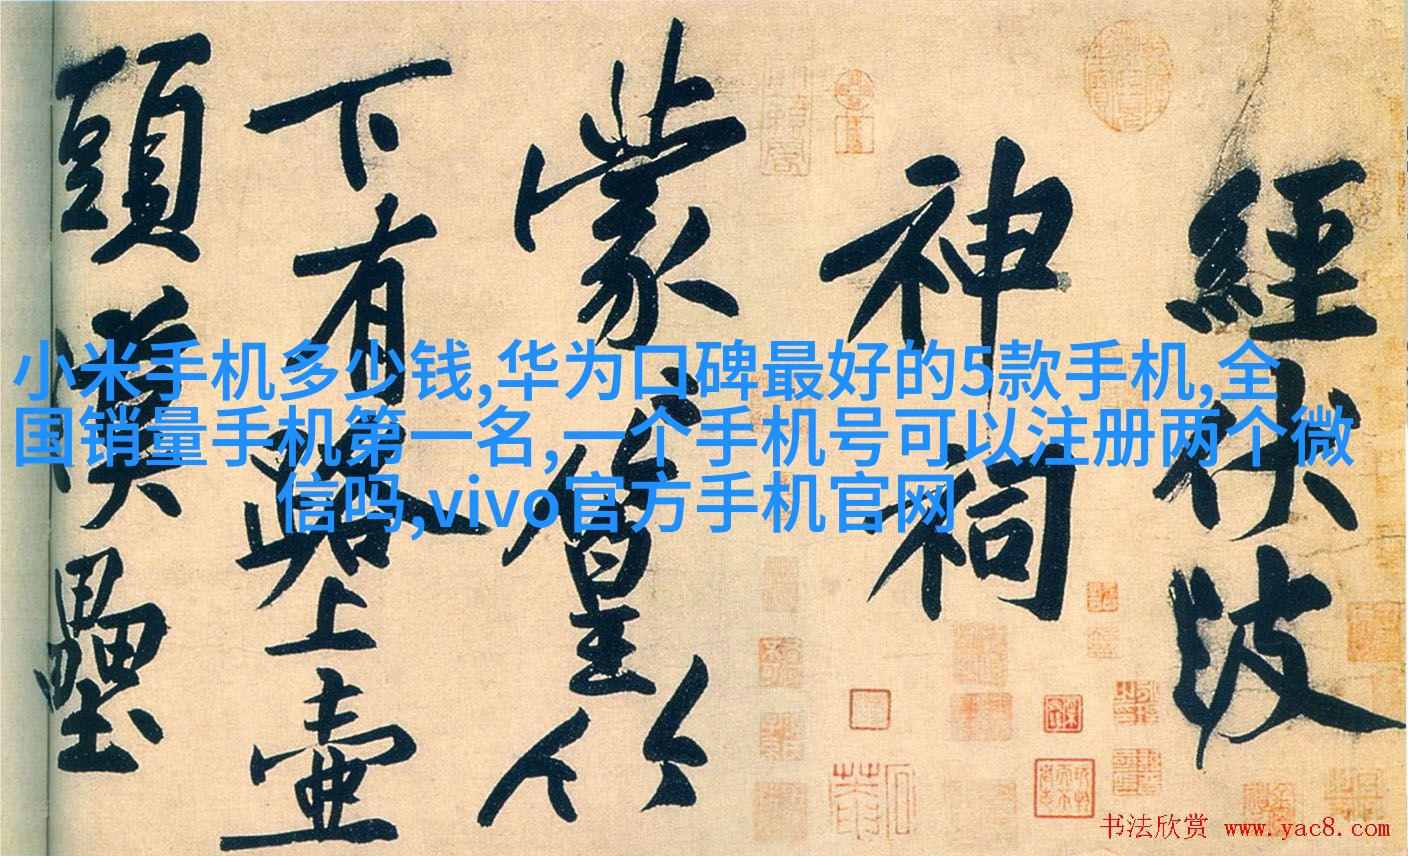 經伏波
神祠
蒙〻篁竹
下有路上壺
頭漢壘
小米手机多少钱,华为口碑最好的5款手机,全
国销量手机第一名,一个手机号可以注册两个微
信吗,vivo官方手机官网
书法欣赏 www.yac8.com